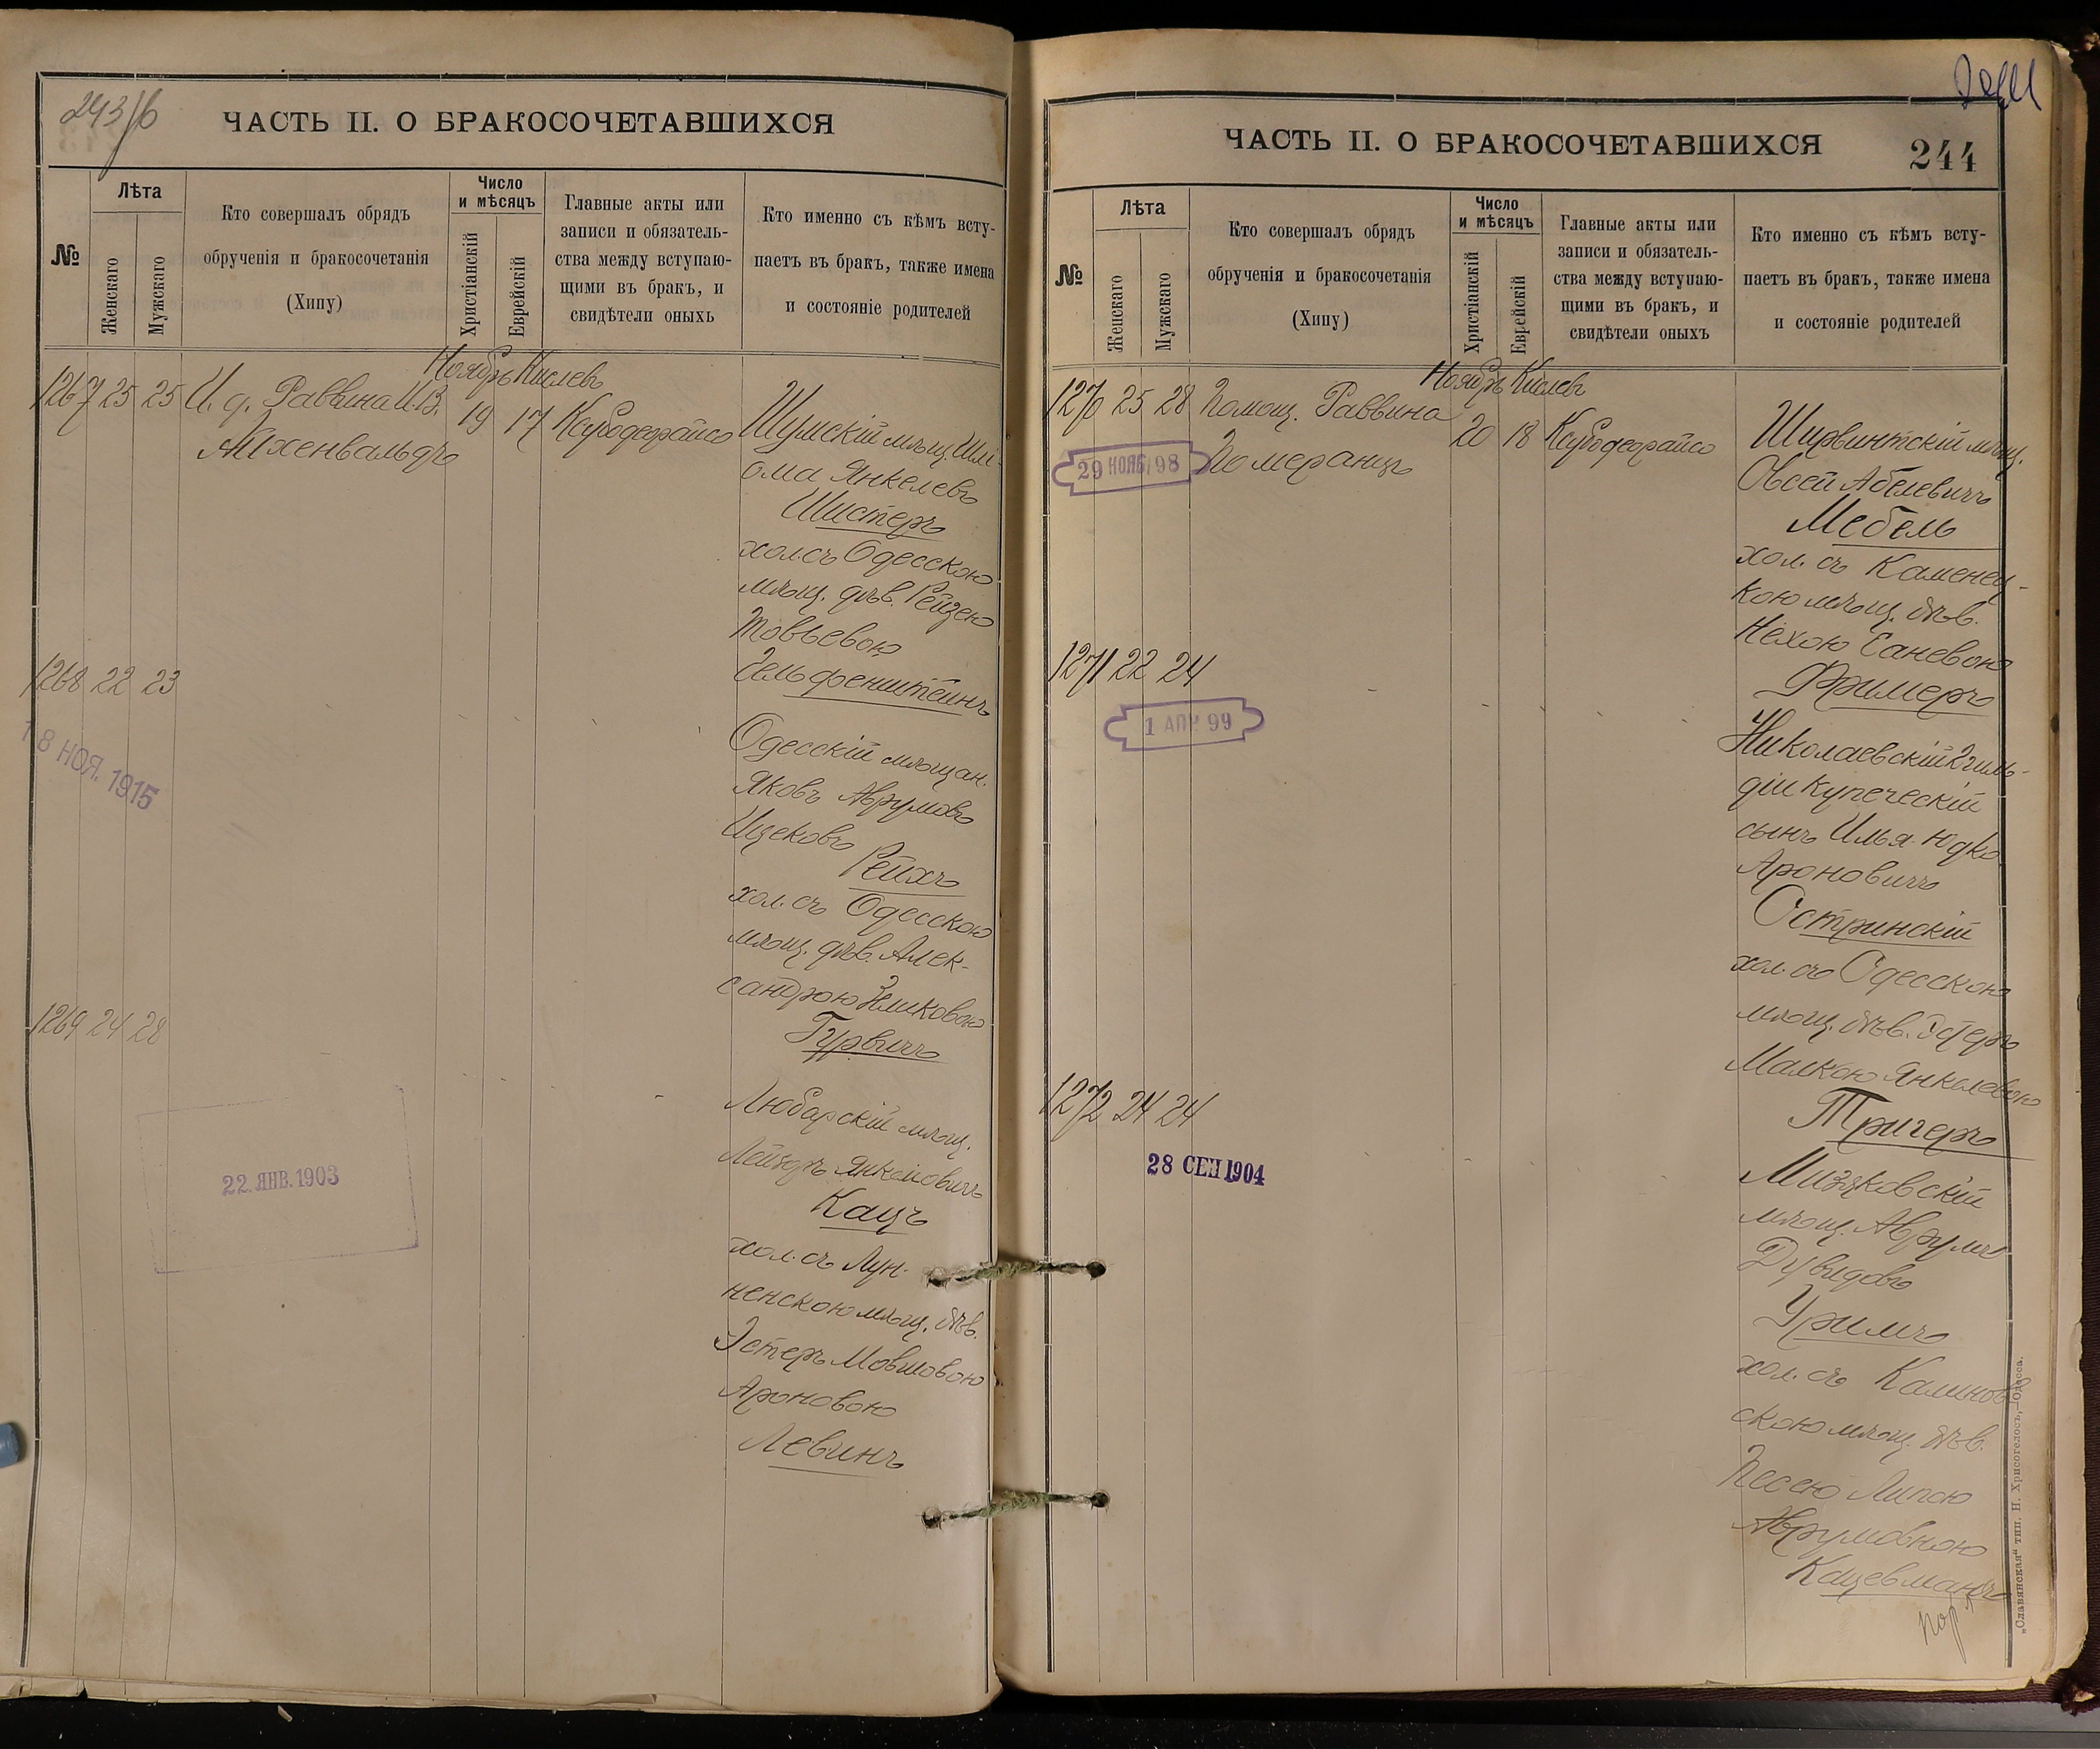 243/б
ЧАСТЬ II. О БРАКОСОЧЕТАВШИХСЯ
№
Лѣта
Женскаго
Мужскаго
Кто совершалъ обрядъ
обрученія и бракосочетанія
(Хипу)
Число
и мѣсяцъ
Христіанскій
Еврейскій
Главные акты или
записи и обязатель-
ства между вступаю-
щими въ бракъ, и
свидѣтели оныхъ
Кто именно съ кѣмъ всту-
паетъ въ бракъ, также имена
и состояніе родителей
Ноябрь Кислевъ
1267 25 25 И. д. Раввина И.В. 19 17
Айхенвальдъ
Шумскій мѣщ. Шлі-
ома Янкелевъ
Шистеръ
хол. съ Одесскою
мѣщ. дѣв. Рейзею
Товьевою
Гельфенштейнъ
1268 22 23
18 НОЯ. 1915
Одесскій мѣщан.
Яковъ Аврумовъ
Ицековъ
Рейхъ
хол. съ Одесскою
мѣщ. дѣв. Алек-
сандрою
Гурвичъ
1269 24 28
22. ЯНВ. 1903
Любарскій мѣщ.
Лейзеръ Янкелевичъ
Кацъ
хол. съ Лун-
ненскою мѣщ. дѣв.
Эстеръ Мовшовою
Ароновою
Левинъ
ЧАСТЬ II. О БРАКОСОЧЕТАВШИХСЯ
244
№
Лѣта
Женскаго
Мужскаго
Кто совершалъ обрядъ
обрученія и бракосочетанія
(Хипу)
Число
и мѣсяцъ
Христіанскій
Еврейскій
Главные акты или
записи и обязатель-
ства между вступаю-
щими въ бракъ, и
свидѣтели оныхъ
Кто именно съ кѣмъ всту-
паетъ въ бракъ, также имена
и состояніе родителей
Ноябрь Кислевъ
1270 25 28 Помощ. Раввина 20 18
Померанцъ
29 НОЯБ 98
Ширвинтскій мѣщ.
Овсей Абелевичъ
Мебель
хол. съ Каменец-
кою мѣщ. дѣв.
Нехою
Фримеръ
1271 22 24
1 АПР 99
Николаевскій 2 гиль-
діи купеческій
сынъ Илья-Юдко
Ароновичъ
Остринскій
хол. съ Одесскою
мѣщ. дѣв. Эстеръ
Малкою Янкелевою
Тригеръ
1272 24 24
28 СЕН 1904
Мизяковскій
мѣщ. Аврумъ
Дувидовъ
Уримъ
хол. съ Калинов-
скою мѣщ. дѣв.
Песею Липою
Аврумовною
Кацевманъ
„Славянская" тип. Н. Хрисогелосъ, Одесса.